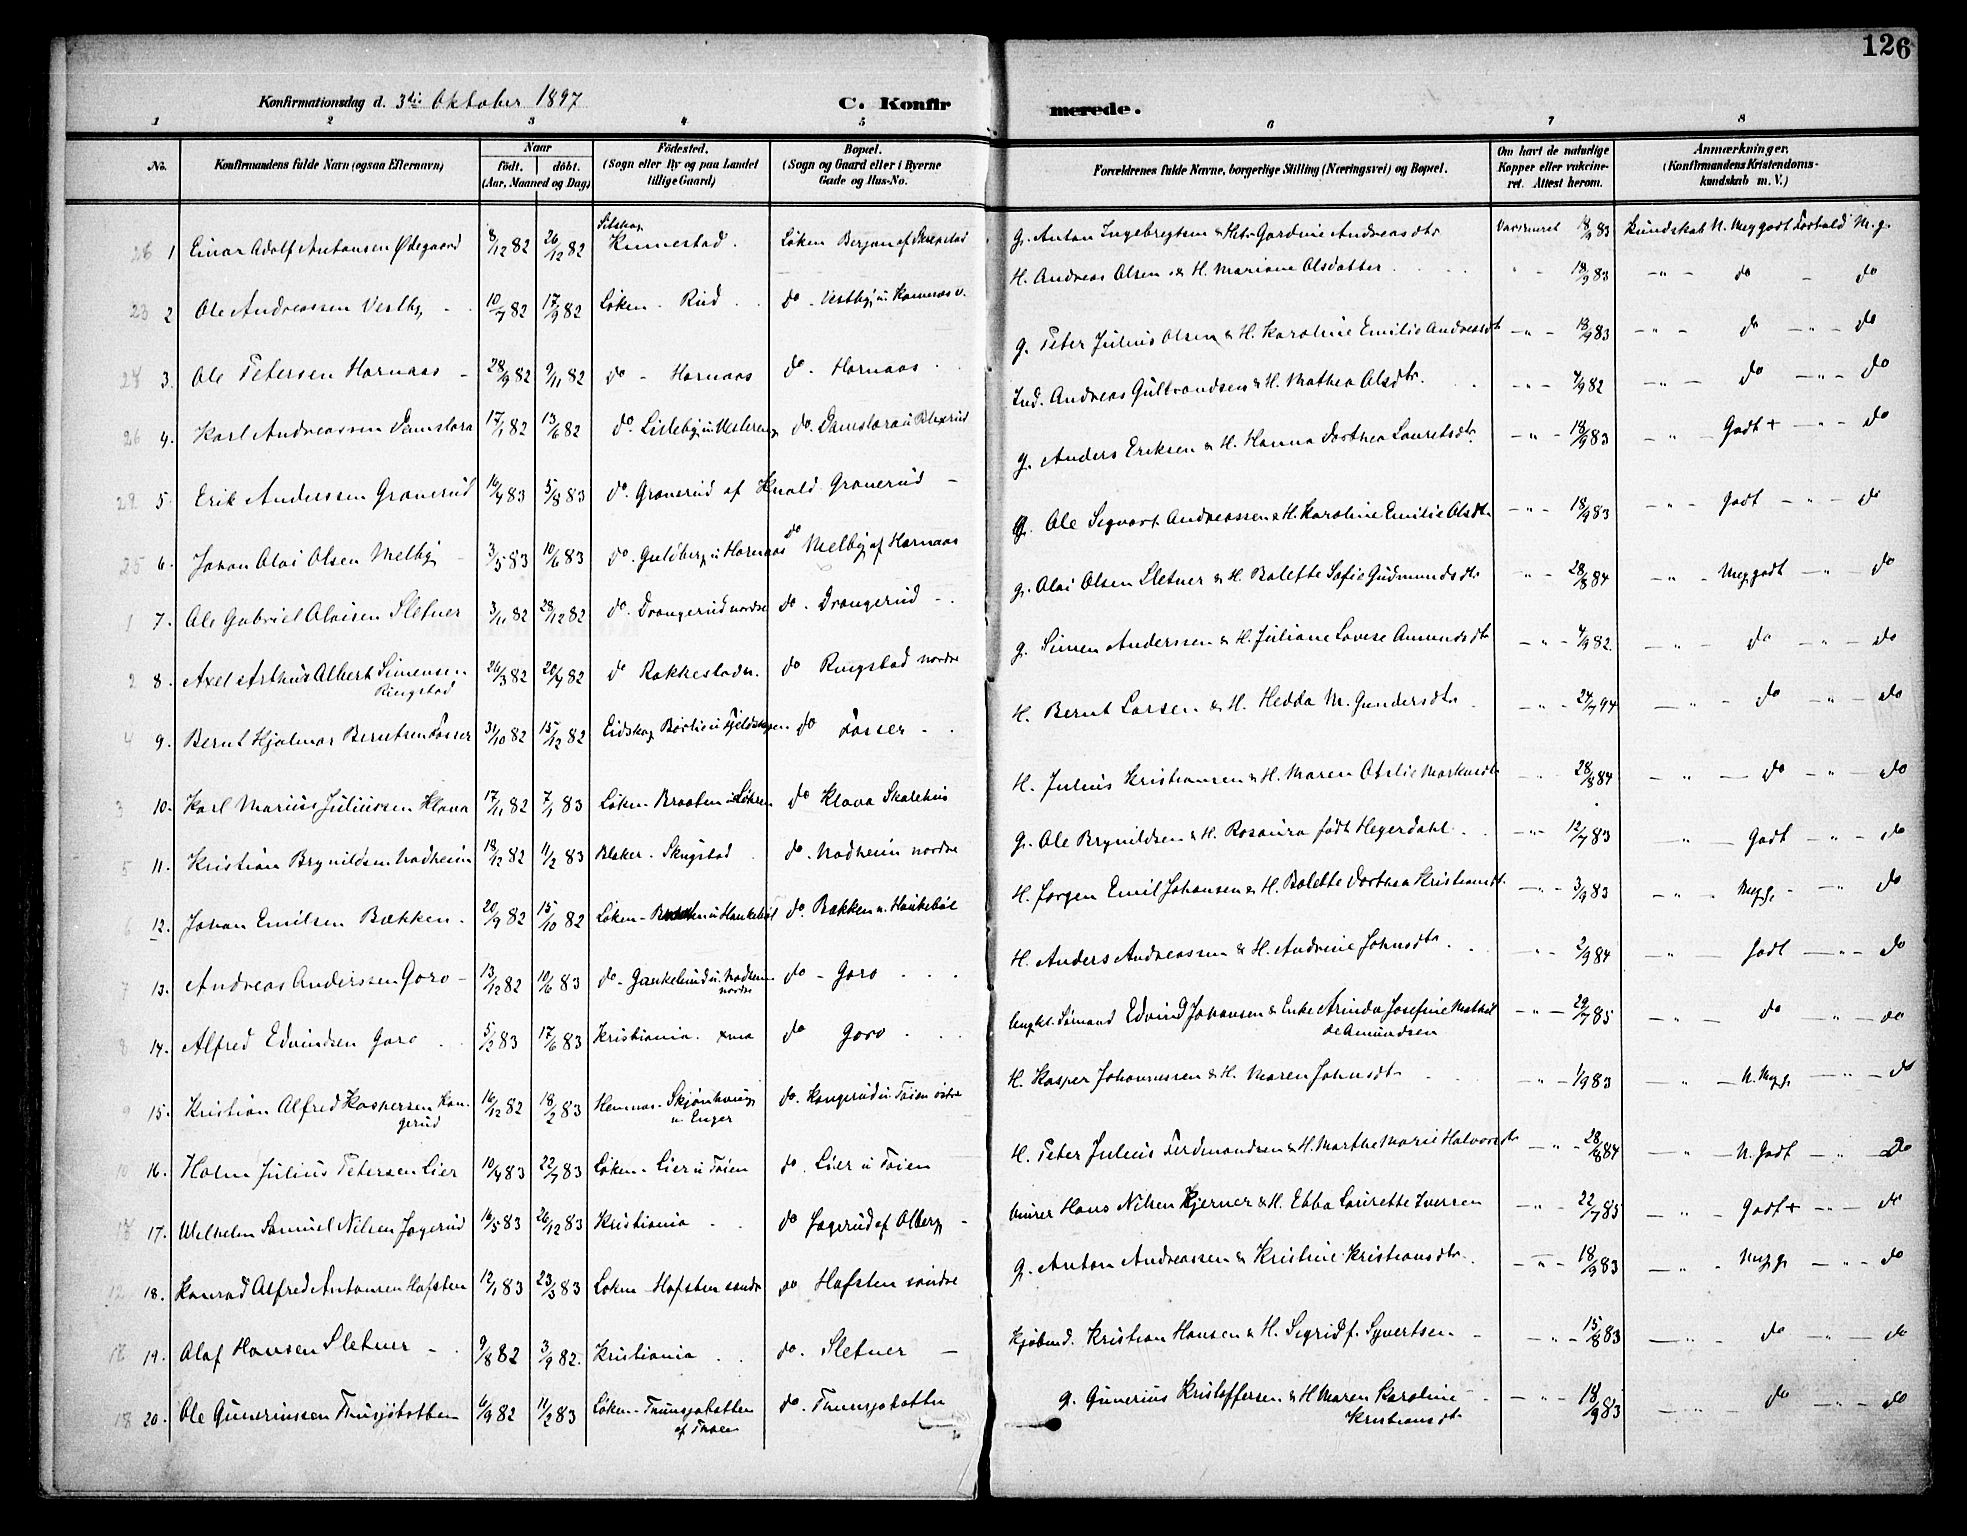 126
Konfirmationsdag d. 3die Oktober 1897 C. Konfirmerede.
1 2 3 4 5 6 7 8
No. Konfirmandens fulde Navn (ogsaa Efternavn) Naar født. døbt. (Aar, Maaned og Dag) Fødested. (Sogn eller By og paa Landet tillige Gaard) Bopæl. (Sogn og Gaard eller i Byerne Gade og Hus-No. Forældrenes fulde Navne, borgerlige Stilling (Næringsvei) og Bopæl. Om havt de naturlige Kopper eller vakcineret. Attest herom. Anmærkninger. (Konfirmandens Kristendomskundskab m. V.)
26 1 Einar Adolf Antonsen Ødegaard 8/12 82 26/12 82 Setskog Kinnestad. Løken G. Anton Ingebregtsen & H. Gardine Andreasdtr Vaccineret 18/9 83 Kundskab N. Meg godt Forhold M.g.
23 2 Ole Andreassen Vestby 10/7 82 17/9 82 Løken - Rud do - Vestby u. H. Andreas Olsen & H. Mariane Olsdatter 18/9 83 do do
3. Ole Petersen Hornaas 28/9 82 9/11 82 do - Hornaas do - Hornaas G. Peter Julius Olsen & H. Karoline Emilie Andreasdtr 18/9 83 do do
26 4. Karl Andreassen Damslora 17/1 82 13/6 82 do. Lilleby u. do. Damslora u Ind. Andreas Gulbrandsen & H. Mathea Olsdtr. 4/9 82 do do
5. Erik Anderssen Granerud 16/4 83 5/8 83 do. Granerud af Granerud G. Anders Eriksen & H. Hanna Dorthea Lauretsdtr 18/9 83 Godt + do
25 6. Johan Olai Olsen Melby 3/5 83 10/6 83 do. Guldberg u Hornaas do Melby af Hornaas G. Ole Sigvart Andreassen & H. Karoline Emilie Olsdtr. 18/9 83 Godt do
1 7. Ole Gabriel Olaisen Sletner 3/11 82 28/12 82 do. Drangerud nordre do. Drangerud G. Olai Olsen Sletner & H. Bolette Sofie Gudmundsdtr 28/8 84 Meg godt do
2 8. Axel Arthur Albert Simensen Ringstad 26/3 82 20/4 82 do Rakkestad do Ringstad nordre G. Simen Anderssen & H. Juliane Lovise Amundsdtr 4/9 82. do do
4 9. Bernt Hjalmar Berntsen Fosser 31/10 82 15/12 82 Eidskog do Fosser H. Bernt Larsen & H. Hedda M. Gundersdtr 24/7 94 do do
3 10. Karl Marius Juliussen Klava 17/11 82 7/1 83 Løken - Braaten u Løken do Klava H. Julius Kristiansen & H. Maren Otilie 28/8 84 do do
5 11. Kristian Brynildsen Nadheim 18/12 82 11/2 83 Blaker - Skugstad do. Nadheim nordre G. Ole Brynildsen & H. Rosaura født Hegerdahl 12/7 83 Godt do
6 12. Johan Emilsen Bækken 20/9 82 15/10 82 Løken do. Bækken u. Haukebøl H. Jørgen Emil Johansen & H. Bolette Dorthea Kristiansdtr. 3/9 83 Megg. do
7 13. Andreas Anderssen Goro 13/12 82 10/6 83 do. nordre do - Goro H. Anders Andreassen & H. Andrine Johnsdtr 2/9 84 Godt do
8 14. Alfred Edvindsen Goro 5/2 83 17/6 83 Kristiania do Goro Ungkl. Sømand Edvind Johansen & Enke Arinda Josefine Mathilde Amundsen 29/7 85 do do
9 15. Kristian Alfred Kaspersen Kangerud 16/12 82 18/2 83 Hemnes - Skjønhaug u. Enger do. Kangerud u Toien østre H. Kasper Johannessen & H. Maren Johnsdtr 1/9 83 N. Megg. do
10 16. Holm Julius Petersen Lier 10/4 83 22/7 83 Løken - Lier u Toien do. Lier u Toien H. Peter Julius Ferdinandsen & H. Marthe Marie Halvorsdtr 28/8 84 N. Godt do
17. Wilhelm Samuel Nilsen Jagerud 16/5 83 26/12 83 Kristiania do Jagerud af Olberg Murer Hans Nilsen Kjerner & H. Ebba Laurette Iversen 22/7 85 Godt + do
12 18. Konrad Alfred Antonsen Hofsten 12/1 83 23/3 83 Løken - Hofsten søndre do Hofsten søndre G. Anton Andreassen & Kristine Kristiansdtr. 18/9 83 Megg. do
19. Olaf Hansen Sletner 9/8 82 3/9 82. Kristiania do. Sletner Kjøbmd. Kristian Hansen & H. Sigrid f. Syvertsen 15/8 83 do do
18 20. Ole Guneriussen 6/9 82 11/2 83 Løken do. G. Gunerius Kristoffersen & H Maren Karoline Kristiansdtr 18/9 83 do do